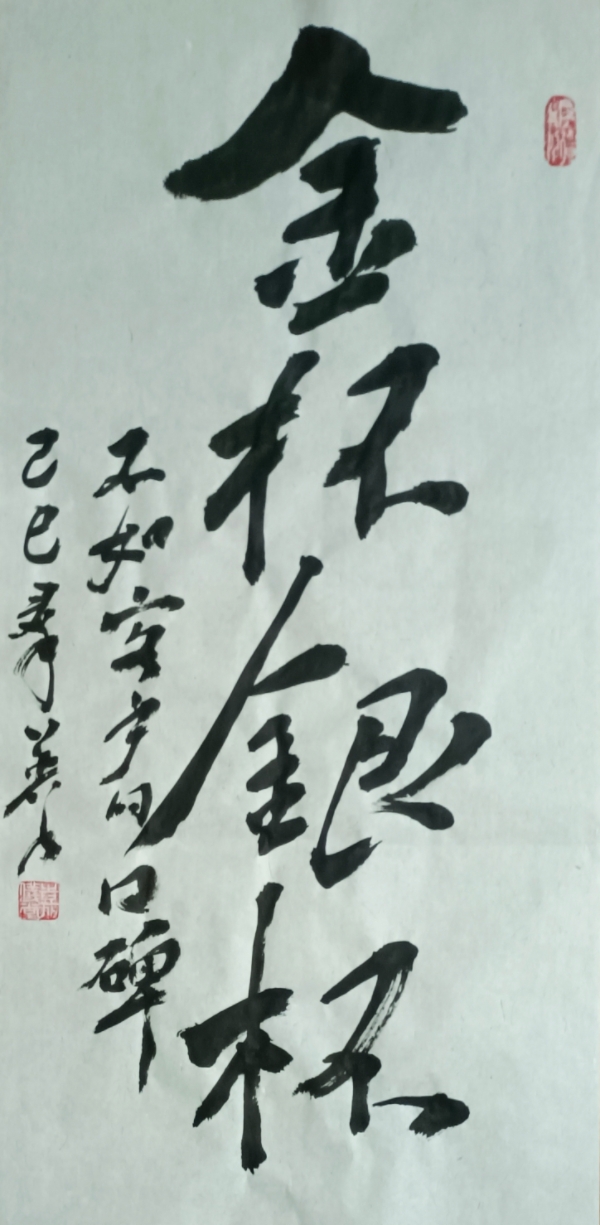 金杯银杯
不如客户的口碑
己巳